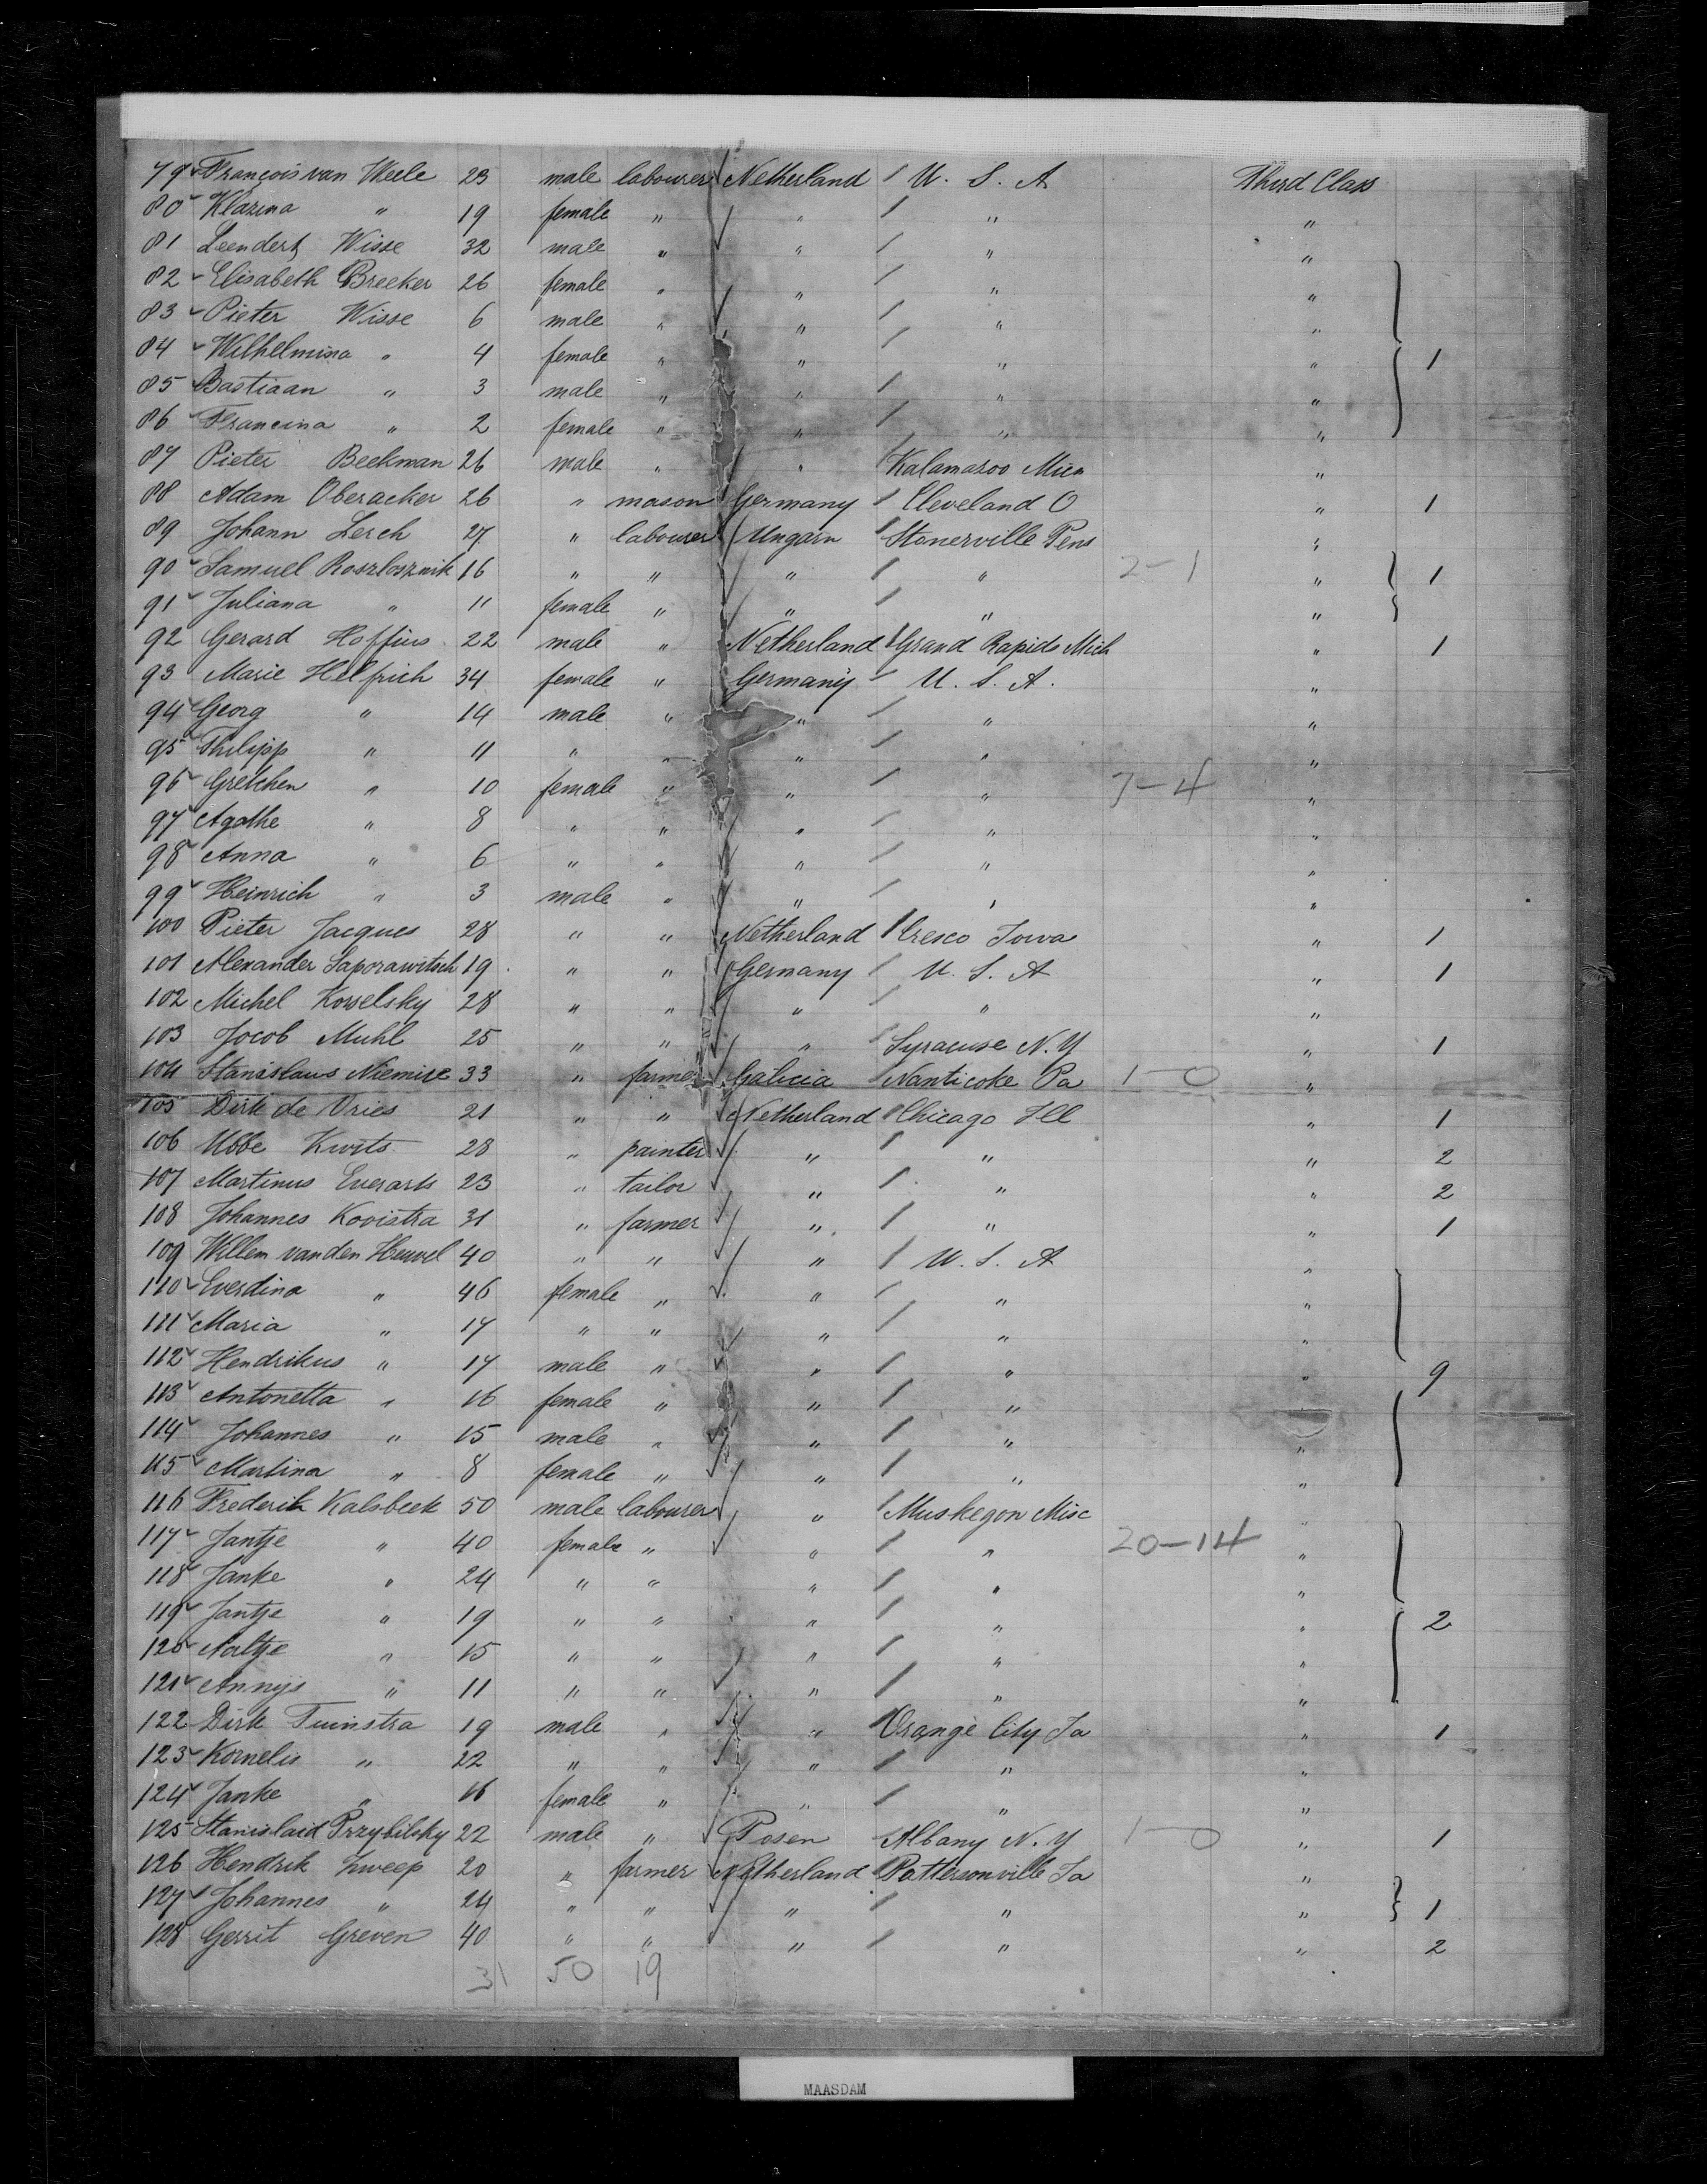 79 François van Weele 23 male labourer Netherland U. S. A Third Class
80 Klazina " 19 female " " " "
81 Leendert Wisse 32 male " " " "
82 Elisabeth Breeker 26 female " " " "
83 Pieter Wisse 6 male " " " "
84 Wilhelmina " 4 female " " " " 1
85 Bastiaan " 3 male " " " "
86 Francina " 2 female " " " "
87 Pieter Beekman 26 male " " Kalamazoo Mich "
88 Adam Oberacker 26 " mason Germany Cleveland O " 1
89 Johann Lerch 27 " labourer Ungarn Stonerville Pens "
90 Samuel Roszlosznik 16 " " " " 2-1 " 1
91 Juliana " 11 female " " " "
92 Gerard Hoffius 22 male " Netherland Grand Rapids Mich " 1
93 Marie Helfrich 34 female " Germany U. S. A. "
94 Georg " 14 male " " " "
95 Philipp " 11 " " " " "
96 Gretchen " 10 female " " " 7-4 "
97 Agathe " 8 " " " " "
98 Anna " 6 " " " " "
99 Heinrich " 3 male " " " "
100 Pieter Jacques 28 " " Netherland Cresco Iowa " 1
101 Alexander Saporawitsch 19 " " Germany U. S. A " 1
102 Michel Kowelsky 28 " " " " "
103 Jacob Muhl 25 " " " Syracuse N. Y " 1
104 Stanislaus Niemise 33 " farmer Galicia Nanticoke Pa 1-0 "
105 Dirk de Vries 21 " " Netherland Chicago Ill " 1
106 Ubbe Kwits 28 " painter " " " 2
107 Martinus Everarts 23 " tailor " " " 2
108 Johannes Kooistra 31 " farmer " " " 1
109 Willem van den Heuvel 40 " " " U. S. A "
110 Everdina " 46 female " " " "
111 Maria " 17 " " " " "
112 Hendrikus " 17 male " " " " 9
113 Antonetta " 16 female " " "
114 Johannes " 15 male " " " "
115 Martina " 8 female " " " "
116 Frederik Kalsbeek 50 male labourer " Muskegon Misc "
117 Jantje " 40 female " " " 20-14 "
118 Janke " 24 " " " " "
119 Jantje " 19 " " " " " 2
120 Aaltje " 15 " " " " "
121 Annijs " 11 " " " " "
122 Dirk Tuinstra 19 male " " Orange City Ia " 1
123 Kornelis " 22 " " " " "
124 Janke " 16 female " " " "
125 Stanislaid Przybilsky 22 male " Posen Albany N. Y 1-0 " 1
126 Hendrik Zweep 20 " farmer Netherland Pattersonville Ia "
127 Johannes " 24 " " " " " 1
128 Gerrit Greven 40 " " " " " 2
31 50 19
MAASDAM